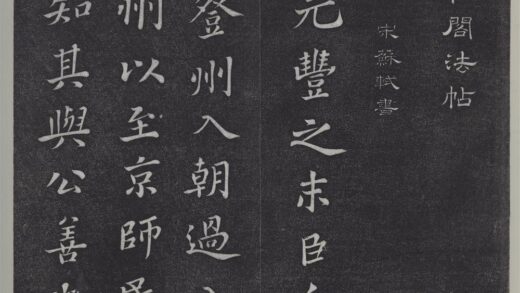 閣法帖
宋蘇軾書
元豐之末臣
登州入朝過
州以至京師
知其與公善